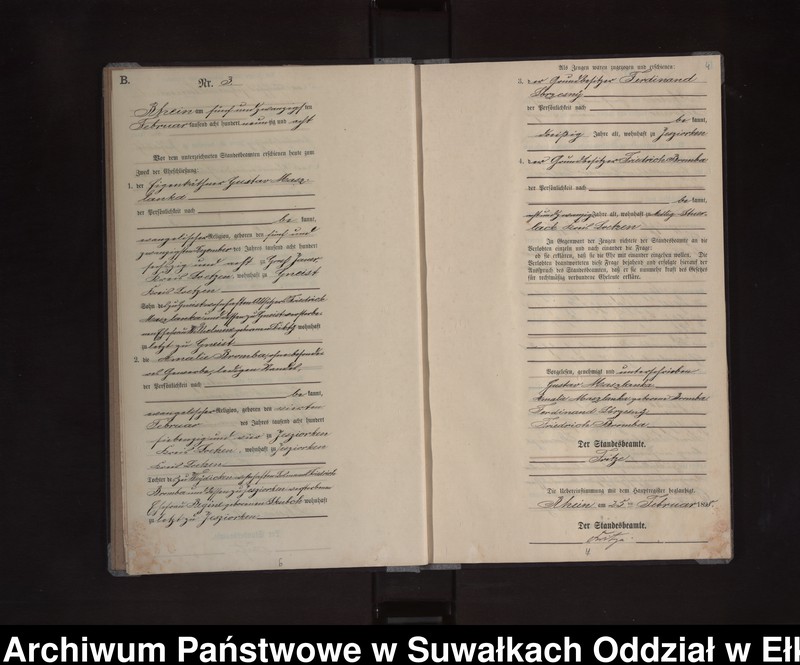 B.
Nr. 3
Rhein am fünf und zwanzigsten
Februar tausend acht hundert neunzig und acht
Vor dem unterzeichneten Standesbeamten erschienen heute zum
Zweck der Eheschließung:
1. der Eigenkäthner Gustav Masz-
lanka
der Persönlichkeit nach
be kannt,
evangelischer Religion, geboren den fünf und
zwanzigsten des Jahres tausend acht hundert
sechszig und acht zu
Kreis Loetzen, wohnhaft zu Gneist
Kreis Loetzen
Sohn des Friedrich
Maszlanka und dessen zu Gneist verstorbe-
nen Ehefrau Wilhelmine geborene wohnhaft
zuletzt zu Gneist
2. die Amalie Bromba, ohne besonderes
Gewerbe, ledigen Standes,
der Persönlichkeit nach
be kannt,
evangelischer Religion, geboren den vierten
Februar des Jahres tausend acht hundert
siebenzig und vier zu Jesziorken
Kreis Loetzen, wohnhaft zu Jesziorken
Kreis Loetzen
Tochter des zu Friedrich
Bromba und dessen zu Jesziorken verstorbenen
Ehefrau Regine geborenen wohnhaft
zuletzt zu Jesziorken
6
Als Zeugen waren zugezogen und erschienen:
4
3. der Grundbesitzer Ferdinand
der Persönlichkeit nach
be kannt,
dreißig Jahre alt, wohnhaft zu Jesziorken
4. der Grundbesitzer Friedrich Bromba
der Persönlichkeit nach
be kannt,
acht und zwanzig Jahre alt, wohnhaft zu Adlig Stür-
lack Kreis Loetzen
In Gegenwart der Zeugen richtete der Standesbeamte an die
Verlobten einzeln und nach einander die Frage:
ob sie erklären, daß sie die Ehe mit einander eingehen wollen. Die
Verlobten beantworteten diese Frage bejahend und erfolgte hierauf der
Ausspruch des Standesbeamten, daß er sie nunmehr kraft des Gesetzes
für rechtmäßig verbundene Eheleute erkläre.
Vorgelesen, genehmigt und unterschrieben
Gustav Maszlanka
Amalie Maszlanka geborene Bromba
Ferdinand
Friedrich Bromba
Der Standesbeamte.
Fritze
Die Uebereinstimmung mit dem Hauptregister beglaubigt.
Rhein, am 25. ten Februar 1898.
Der Standesbeamte.
Fritze
4
Archiwum Państwowe w Suwałkach Oddział w Ełk